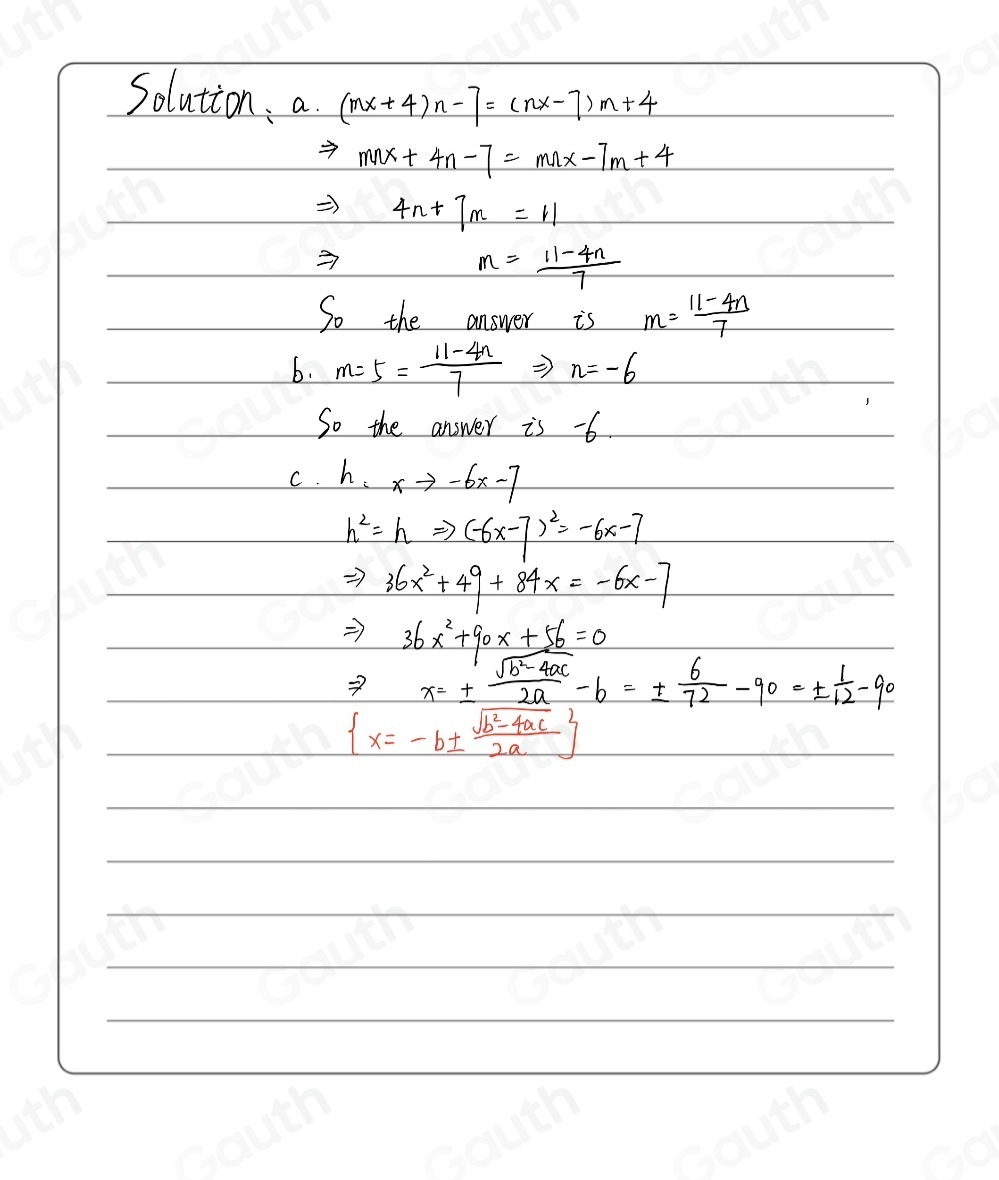 Solution: a. (mx+4)n-7=(nx-7)m+4
⇒ mnx+4n-7=mnx-7m+4
⇒ 4n+7m=11
⇒ m=\frac{11-4n}{7}
So the answer is m=\frac{11-4n}{7}
b. m=5=\frac{11-4n}{7} ⇒ n=-6
So the answer is -6.
c. h: x→-6x-7
h²=h ⇒(-6x-7)²=-6x-7
⇒ 36x²+49+84x=-6x-7
⇒ 36x²+90x+56=0
⇒ x=±\frac{\sqrt{b²-4ac}}{2a}-b=±\frac{6}{72}-90=±\frac{1}{12}-90
{x=-b±\frac{\sqrt{b²-4ac}}{2a}}
Gauth